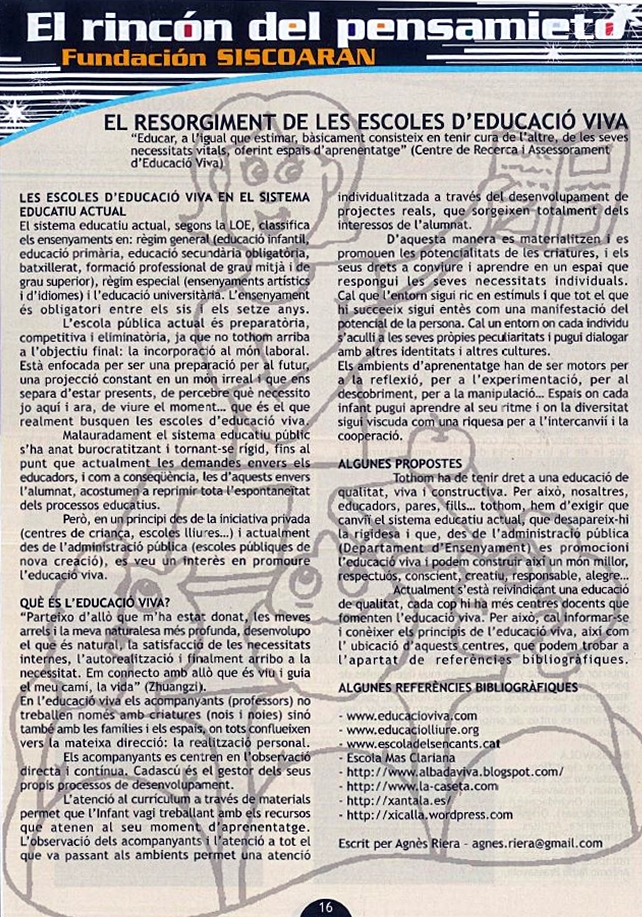 El rincón del pensamieto
Fundación SISCOARAN
EL RESORGIMENT DE LES ESCOLES D'EDUCACIÓ VIVA
"Educar, a l'igual que estimar, bàsicament consisteix en tenir cura de l'altre, de les seves
necessitats vitals, oferint espais d'aprenentatge" (Centre de Recerca i Assessorament
d'Educació Viva)
LES ESCOLES D'EDUCACIÓ VIVA EN EL SISTEMA
EDUCATIU ACTUAL
El sistema educatiu actual, segons la LOE, classifica
els ensenyaments en: règim general (educació infantil,
educació primària, educació secundària obligatòria,
batxillerat, formació professional de grau mitjà i de
grau superior), règim especial (ensenyaments artístics
i d'idiomes) i l'educació universitària. L'ensenyament
és obligatori entre els sis i els setze anys.
L'escola pública actual és preparatòria,
competitiva i eliminatòria, ja que no tothom arriba
a l'objectiu final: la incorporació al món laboral.
Està enfocada per ser una preparació per al futur,
una projecció constant en un món irreal i que ens
separa d'estar presents, de percebre què necessito
jo aquí i ara, de viure el moment... que és el que
realment busquen les escoles d'educació viva.
Malauradament el sistema educatiu públic
s'ha anat burocratitzant i tornant-se rígid, fins al
punt que actualment les demandes envers els
educadors, i com a conseqüència, les d'aquests envers
l'alumnat, acostumen a reprimir tota l'espontaneïtat
dels processos educatius.
Però, en un principi des de la iniciativa privada
(centres de criança, escoles lliures...) i actualment
des de l'administració pública (escoles públiques de
nova creació), es veu un interès en promoure
l'educació viva.
QUÈ ÉS L'EDUCACIÓ VIVA?
"Parteixo d'allò que m'ha estat donat, les meves
arrels i la meva naturalesa més profunda, desenvolupo
el què és natural, la satisfacció de les necessitats
internes, l'autorealització i finalment arribo a la
necessitat. Em connecto amb allò que és viu i guia
el meu camí, la vida" (Zhuangzi).
En l'educació viva els acompanyants (professors) no
treballen només amb criatures (nois i noies) sinó
també amb les famílies i els espais, on tots conflueixen
vers la mateixa direcció: la realització personal.
Els acompanyants es centren en l'observació
directa i contínua. Cadascú és el gestor dels seus
propis processos de desenvolupament.
L'atenció al currículum a través de materials
permet que l'Infant vagi treballant amb els recursos
que atenen al seu moment d'aprenentatge.
L'observació dels acompanyants i l'atenció a tot el
que va passant als ambients permet una atenció
individualitzada a través del desenvolupament de
projectes reals, que sorgeixen totalment dels
interessos de l'alumnat.
D'aquesta manera es materialitzen i es
promouen les potencialitats de les criatures, i els
seus drets a conviure i aprendre en un espai que
respongui les seves necessitats individuals.
Cal que l'entorn sigui ric en estímuls i que tot el que
hi succeeix sigui entès com una manifestació del
potencial de la persona. Cal un entorn on cada individu
s'aculli a les seves pròpies peculiaritats i pugui dialogar
amb altres identitats i altres cultures.
Els ambients d'aprenentatge han de ser motors per
la reflexió, per a l'experimentació, per al
descobriment, per a la manipulació... Espais on cada
infant pugui aprendre al seu ritme i on la diversitat
sigui viscuda com una riquesa per a l'intercanvii i la
cooperació.
ALGUNES PROPOSTES
Tothom ha de tenir dret a una educació de
qualitat, viva i constructiva. Per això, nosaltres,
educadors, pares, fills... tothom, hem d'exigir que
canvïi el sistema educatiu actual, que desapareix-hi
la rigidesa i que, des de l'administració pública
(Departament d'Ensenyament) es promocioni
l'educació viva i podem construir així un món millor,
respectuós, conscient, creatiu, responsable, alegre...
Actualment s'està reivindicant una educació
de qualitat, cada cop hi ha més centres docents que
fomenten l'educació viva. Per això, cal informar-se
i conèixer els principis de l'educació viva, així com
l' ubicació d'aquests centres, que podem trobar a
l'apartat de referències bibliogràfiques.
ALGUNES REFERÈNCIES BIBLIOGRÀFIQUES
- www.educacioviva.com
- www.educaciolliure.org
- www.escoladelsencants.cat
- Escola Mas Clariana
- http://www.albadaviva.blogspot.com/
- http://www.la-caseta.com
- http://xantala.es/
- http://xicalla.wordpress.com
Escrit per Agnès Riera - agnes.riera@gmail.com
16